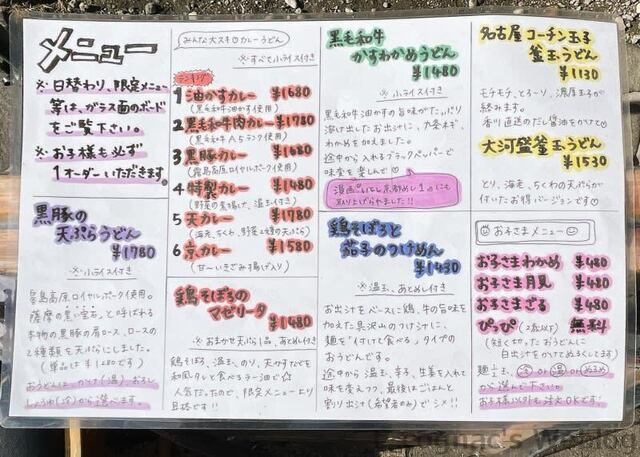 メニュー
※日替わり、限定メニュー
等は、ガラス面のボード
をご覧下さい。
※お子様も必ず
1オーダーいただきます。
黒豚の
天ぷらうどん
¥1780
※小ライス付き
霧島高原ロイヤルポーク使用。
薩摩の黒い宝石。と呼ばれる
本物の黒豚の肩ロース、ロースの
2種類を天ぷらにしました。
(単品は¥1280です)
おうどんは、かけ(温)おろし
しょうゆ(冷)から選べます。
みんな大スキ♡カレーうどん
※すべて小ライス付き
ランキング
1 油かすカレー ¥1680
(黒毛和牛油かす使用)
2 黒毛和牛肉カレー ¥1780
(黒毛和牛A5ランク使用)
3 黒豚カレー ¥1680
(霧島高原ロイヤルポーク使用)
4 特製カレー ¥1480
(野菜の素揚げ、温玉付き)
5 天カレー ¥1780
(海老、ちくわ、野菜2種の天ぷら)
6 京カレー ¥1580
(甘〜いきざみ揚げ入り)
鶏そぼろの
マゼリータ ¥1480
※おまかせ天ぷら1品、あとめし付き
鶏そぼろ、温玉、のり、天かすなどを
和風タレと食べるラー油で☆
人気だったので、限定メニューより
昇格です!!
黒毛和牛
かすわかめうどん
¥1480
※小ライス付き
黒毛和牛油かすの旨味がたっぷり
溶け出したお出汁に、九条ネギ、
わかめを加えました。
途中から入れるブラックペッパーで
味変を楽しんで♡
取り上げられました!!
鶏そぼろと
茄子のつけめん
¥1430
※温玉、あとめし付き
お出汁をベースに鶏、牛の旨味を
加えた具沢山のつけ汁に、
麺を「付けして食べる」タイプの
おうどんです。
途中から温玉、辛子、生姜を入れて
味を変えつつ、最後はごはんと
割り出汁(希望者のみ)でシメ!!
名古屋コーチン玉子
釜玉うどん
¥1130
モチモチ、とろーり、濃厚玉子が
絡みます。
香川直送のだし醤油をかけて♡
大河盛釜玉うどん
¥1530
とり、海老、ちくわの天ぷらが
付いたお得バージョンです♡
お子さまメニュー
お子さまわかめ ¥480
お子さま月見 ¥480
お子さまざる ¥480
ぴっぴ (2歳以下) 無料
(短く切ったおうどんに
白出汁をかけてぬるくしてます)
麺1玉、冷 or 温 or ぬるめ
から選んで下さい♡
お子様以外も注文OKです!